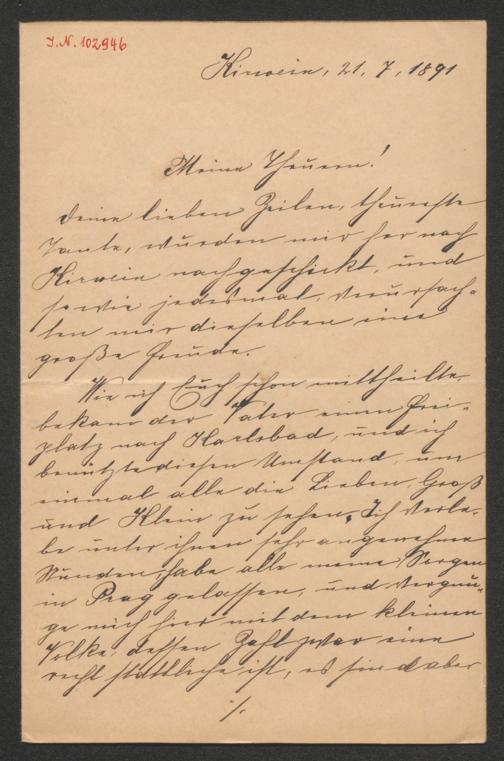 I.N. 102946
Hirwein, 21. 7, 1891
Meine Theuern!
Deine lieben Zeilen, theuerste
Tante, wurden mir her nach
Hirwein nachgeschickt, und
sowie jedesmal, verursach-
ten mir dieselben eine
große Freude.
Wie ich Euch schon mittheilte,
bekam der Vater einen Frei-
platz nach Karlsbad, und ich
benützte diesen Umstand, um
einmal alle die Lieben, Groß
und Klein zu sehen. Ich verle-
be unter ihnen sehr angenehme
Stunden, habe alle meine Sorgen
in Prag gelassen, und vergnü-
ge mich hier mit dem kleinen
Volke, dessen Zahl zwar eine
recht stattliche ist, es sind aber
./.